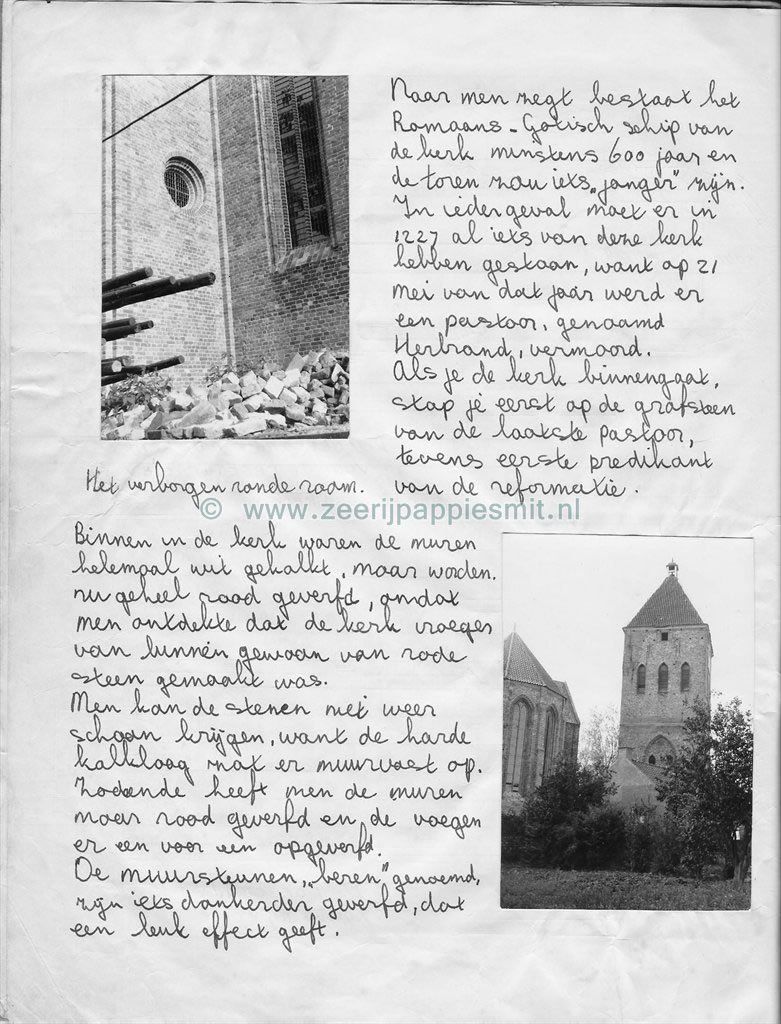 Naar men zegt bestaat het
Romaans-Gotisch schip van
de kerk minstens 600 jaar en
de toren zou iets „jonger” zijn.
In ieder geval moet er in
1227 al iets van deze kerk
hebben gestaan, want op 21
mei van dat jaar werd er
een pastoor, genaamd
Herbrand, vermoord.
Als je de kerk binnengaat,
stap je eerst op de grafsteen
van de laatste pastoor,
tevens eerste predikant
van de reformatie.
Het verborgen ronde raam.
© www.zeerijpappiesmit.nl
Binnen in de kerk waren de muren
helemaal wit gekalkt, maar worden
nu geheel rood geverfd, omdat
men ontdekte dat de kerk vroeger
van binnen gewoon van rode
steen gemaakt was.
Men kan de stenen niet weer
schoon krijgen, want de harde
kalklaag zat er muurvast op.
Zodoende heeft men de muren
maar rood geverfd en de voegen
er een voor een opgeverfd.
De muursteunen, „beren” genoemd,
zijn iets donkerder geverfd, dat
een leuk effect geeft.